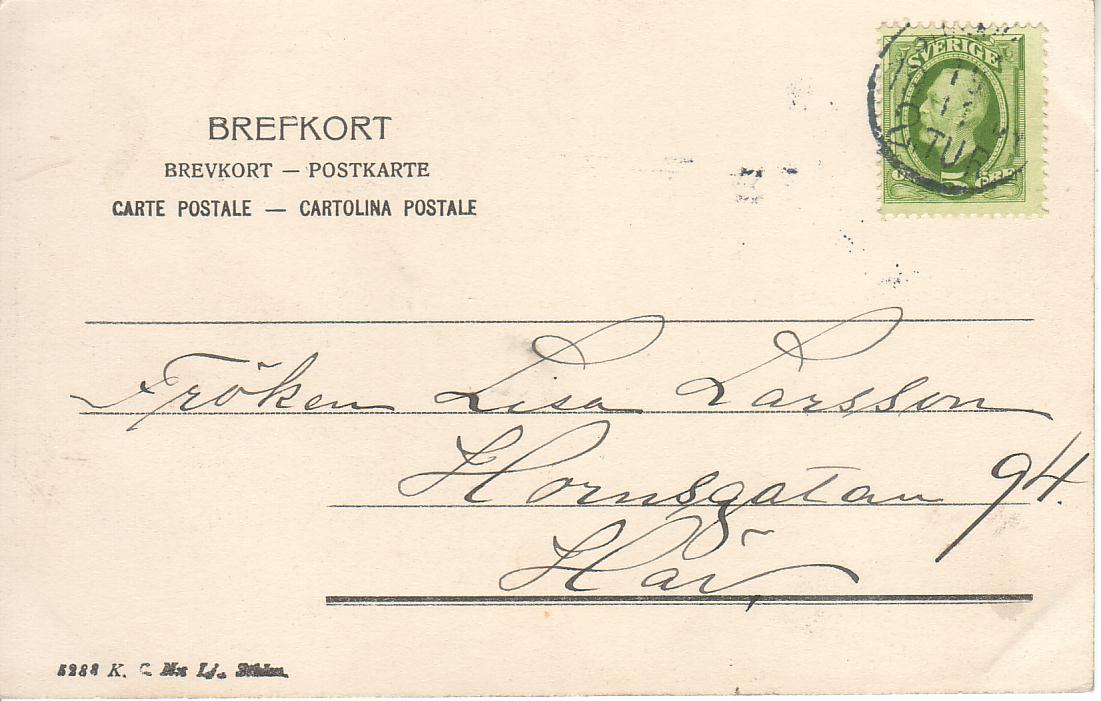 BREFKORT
BREVKORT — POSTKARTE
CARTE POSTALE — CARTOLINA POSTALE
SVERIGE
TUR
Fröken Lisa Larsson
Hornsgatan 94.
Här,
5288 K.